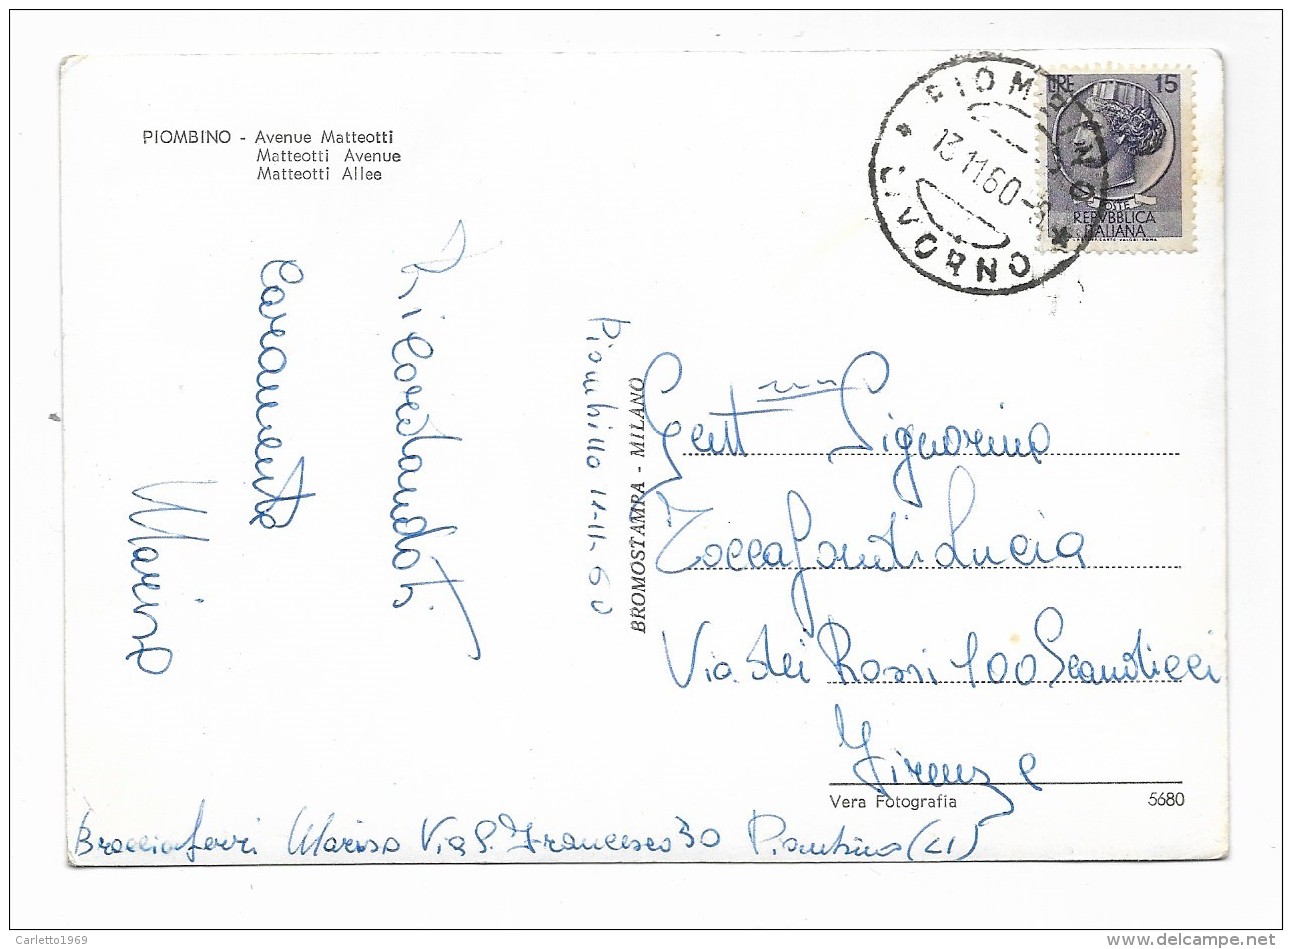 PIOMBINO - Avenue Matteotti
Matteotti Avenue
Matteotti Allee
PIOMBINO
13.11.60-9
* LIVORNO *
LIRE 15
POSTE
REPVBBLICA
ITALIANA
Ricordandoti
Caramente
Piombino 11-11-60
BROMOSTAMPA - MILANO
Gent ma Signorina
Toccafondi Lucia
Via dei Rossi 100 Scandicci
Firenze
Vera Fotografia 5680
Braccioferri Via S. Francesco 30 Piombino (LI)
Carletto1969
www.delcampe.net